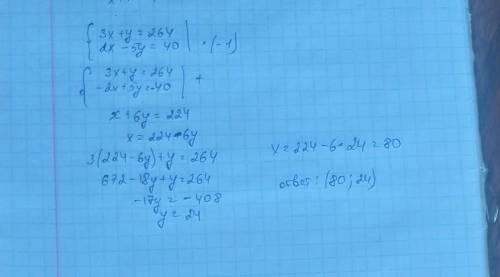 { 3x+y=264
2x-5y=40 | ·(-1)
{ 3x+y=264
-2x+5y=-40 | +
x+6y=224
x=224-6y
3(224-6y)+y=264
672-18y+y=264
-17y=-408
y=24
x=224-6·24=80
ответ: (80; 24)